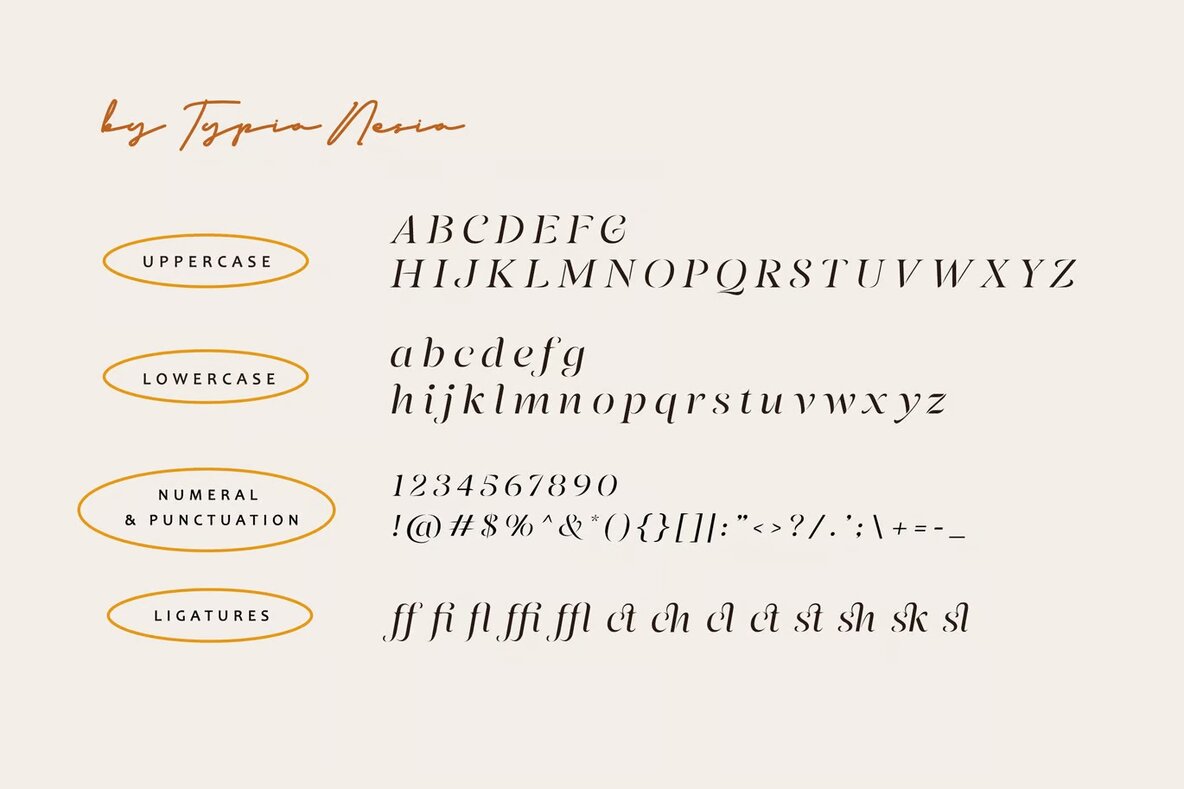 by Typia Nesia
UPPERCASE
A B C D E F G
H I J K L M N O P Q R S T U V W X Y Z
LOWERCASE
a b c d e f g
h i j k l m n o p q r s t u v w x y z
NUMERAL
& PUNCTUATION
1 2 3 4 5 6 7 8 9 0
! @ # $ % ^ & * ( ) { } [ ] | : ” < > ? / . ’ ; \ + = - _
LIGATURES
ff fi fl ffi ffl ct ch cl ct st sh sk sl